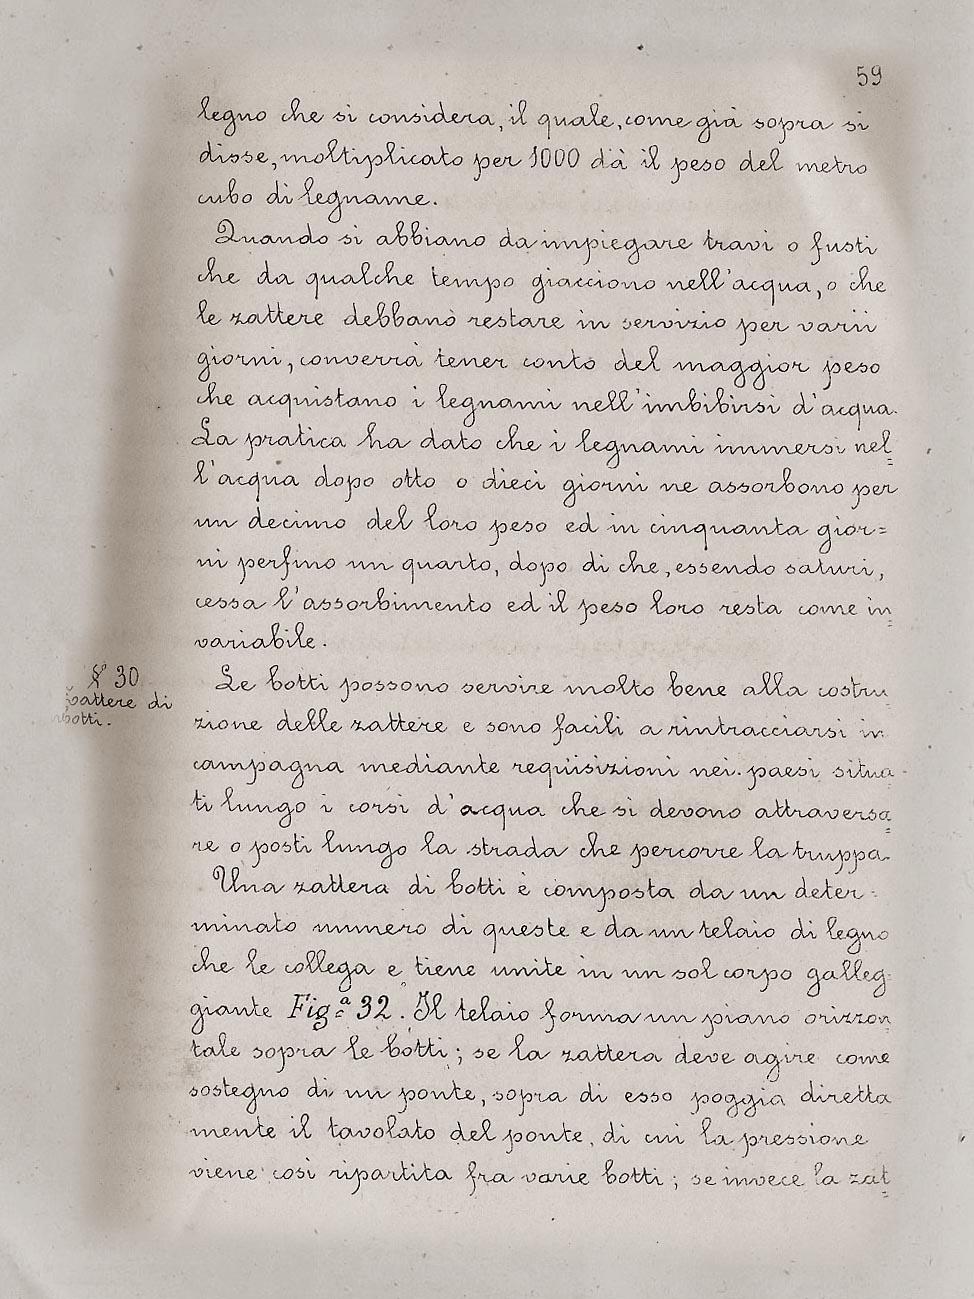 59
legno che si considera, il quale, come già sopra si
disse, moltiplicato per 1000 dà il peso del metro
cubo di legname.
Quando si abbiano da impiegare travi o fusti
che da qualche tempo giacciono nell'acqua, o che
le zattere debbano restare in servizio per varii
giorni, converrà tener conto del maggior peso
che acquistano i legnami nell'imbibirsi d'acqua.
La pratica ha dato che i legnami immersi nel=
l'acqua dopo otto o dieci giorni ne assorbono per
un decimo del loro peso ed in cinquanta gior=
ni perfino un quarto, dopo di che, essendo saturi,
cessa l'assorbimento ed il peso loro resta come in=
variabile.
§ 30
Zattere di
botti.
Le botti possono servire molto bene alla costru
zione delle zattere e sono facili a rintracciarsi in
campagna mediante requisizioni nei paesi situa-
ti lungo i corsi d'acqua che si devono attraversa=
re o posti lungo la strada che percorre la truppa.
Una zattera di botti è composta da un deter-
minato numero di queste e da un telaio di legno
che le collega e tiene unite in un sol corpo galleg-
giante Fig.ª 32. Il telaio forma un piano orizzon=
tale sopra le botti; se la zattera deve agire come
sostegno di un ponte, sopra di esso poggia diretta
mente il tavolato del ponte, di cui la pressione
viene così ripartita fra varie botti; se invece la zat=